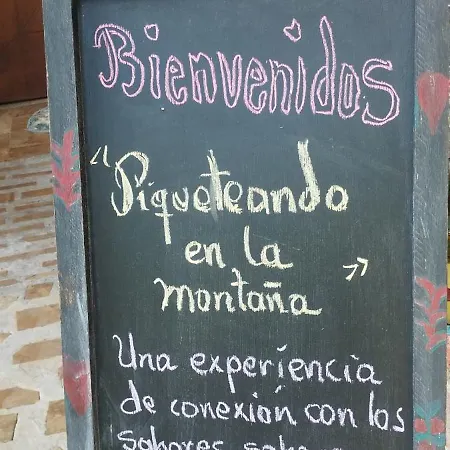 Bienvenidos
"Piqueteando
en la
montaña"
Una experiencia
de conexión con los
sabores